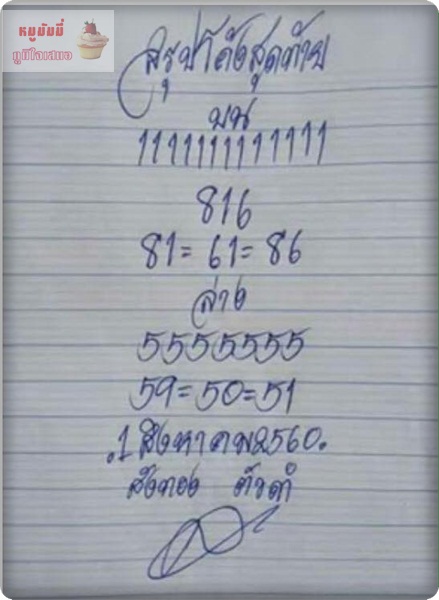 หมูมัมมี่
ภูมิใจเสนอ
สรุปโค้งสุดท้าย
บน
1111111111111
816
81=61=86
ล่าง
5555555
59=50=51
.1 สิงหาคม2560.
สังทอง ตัวดำ